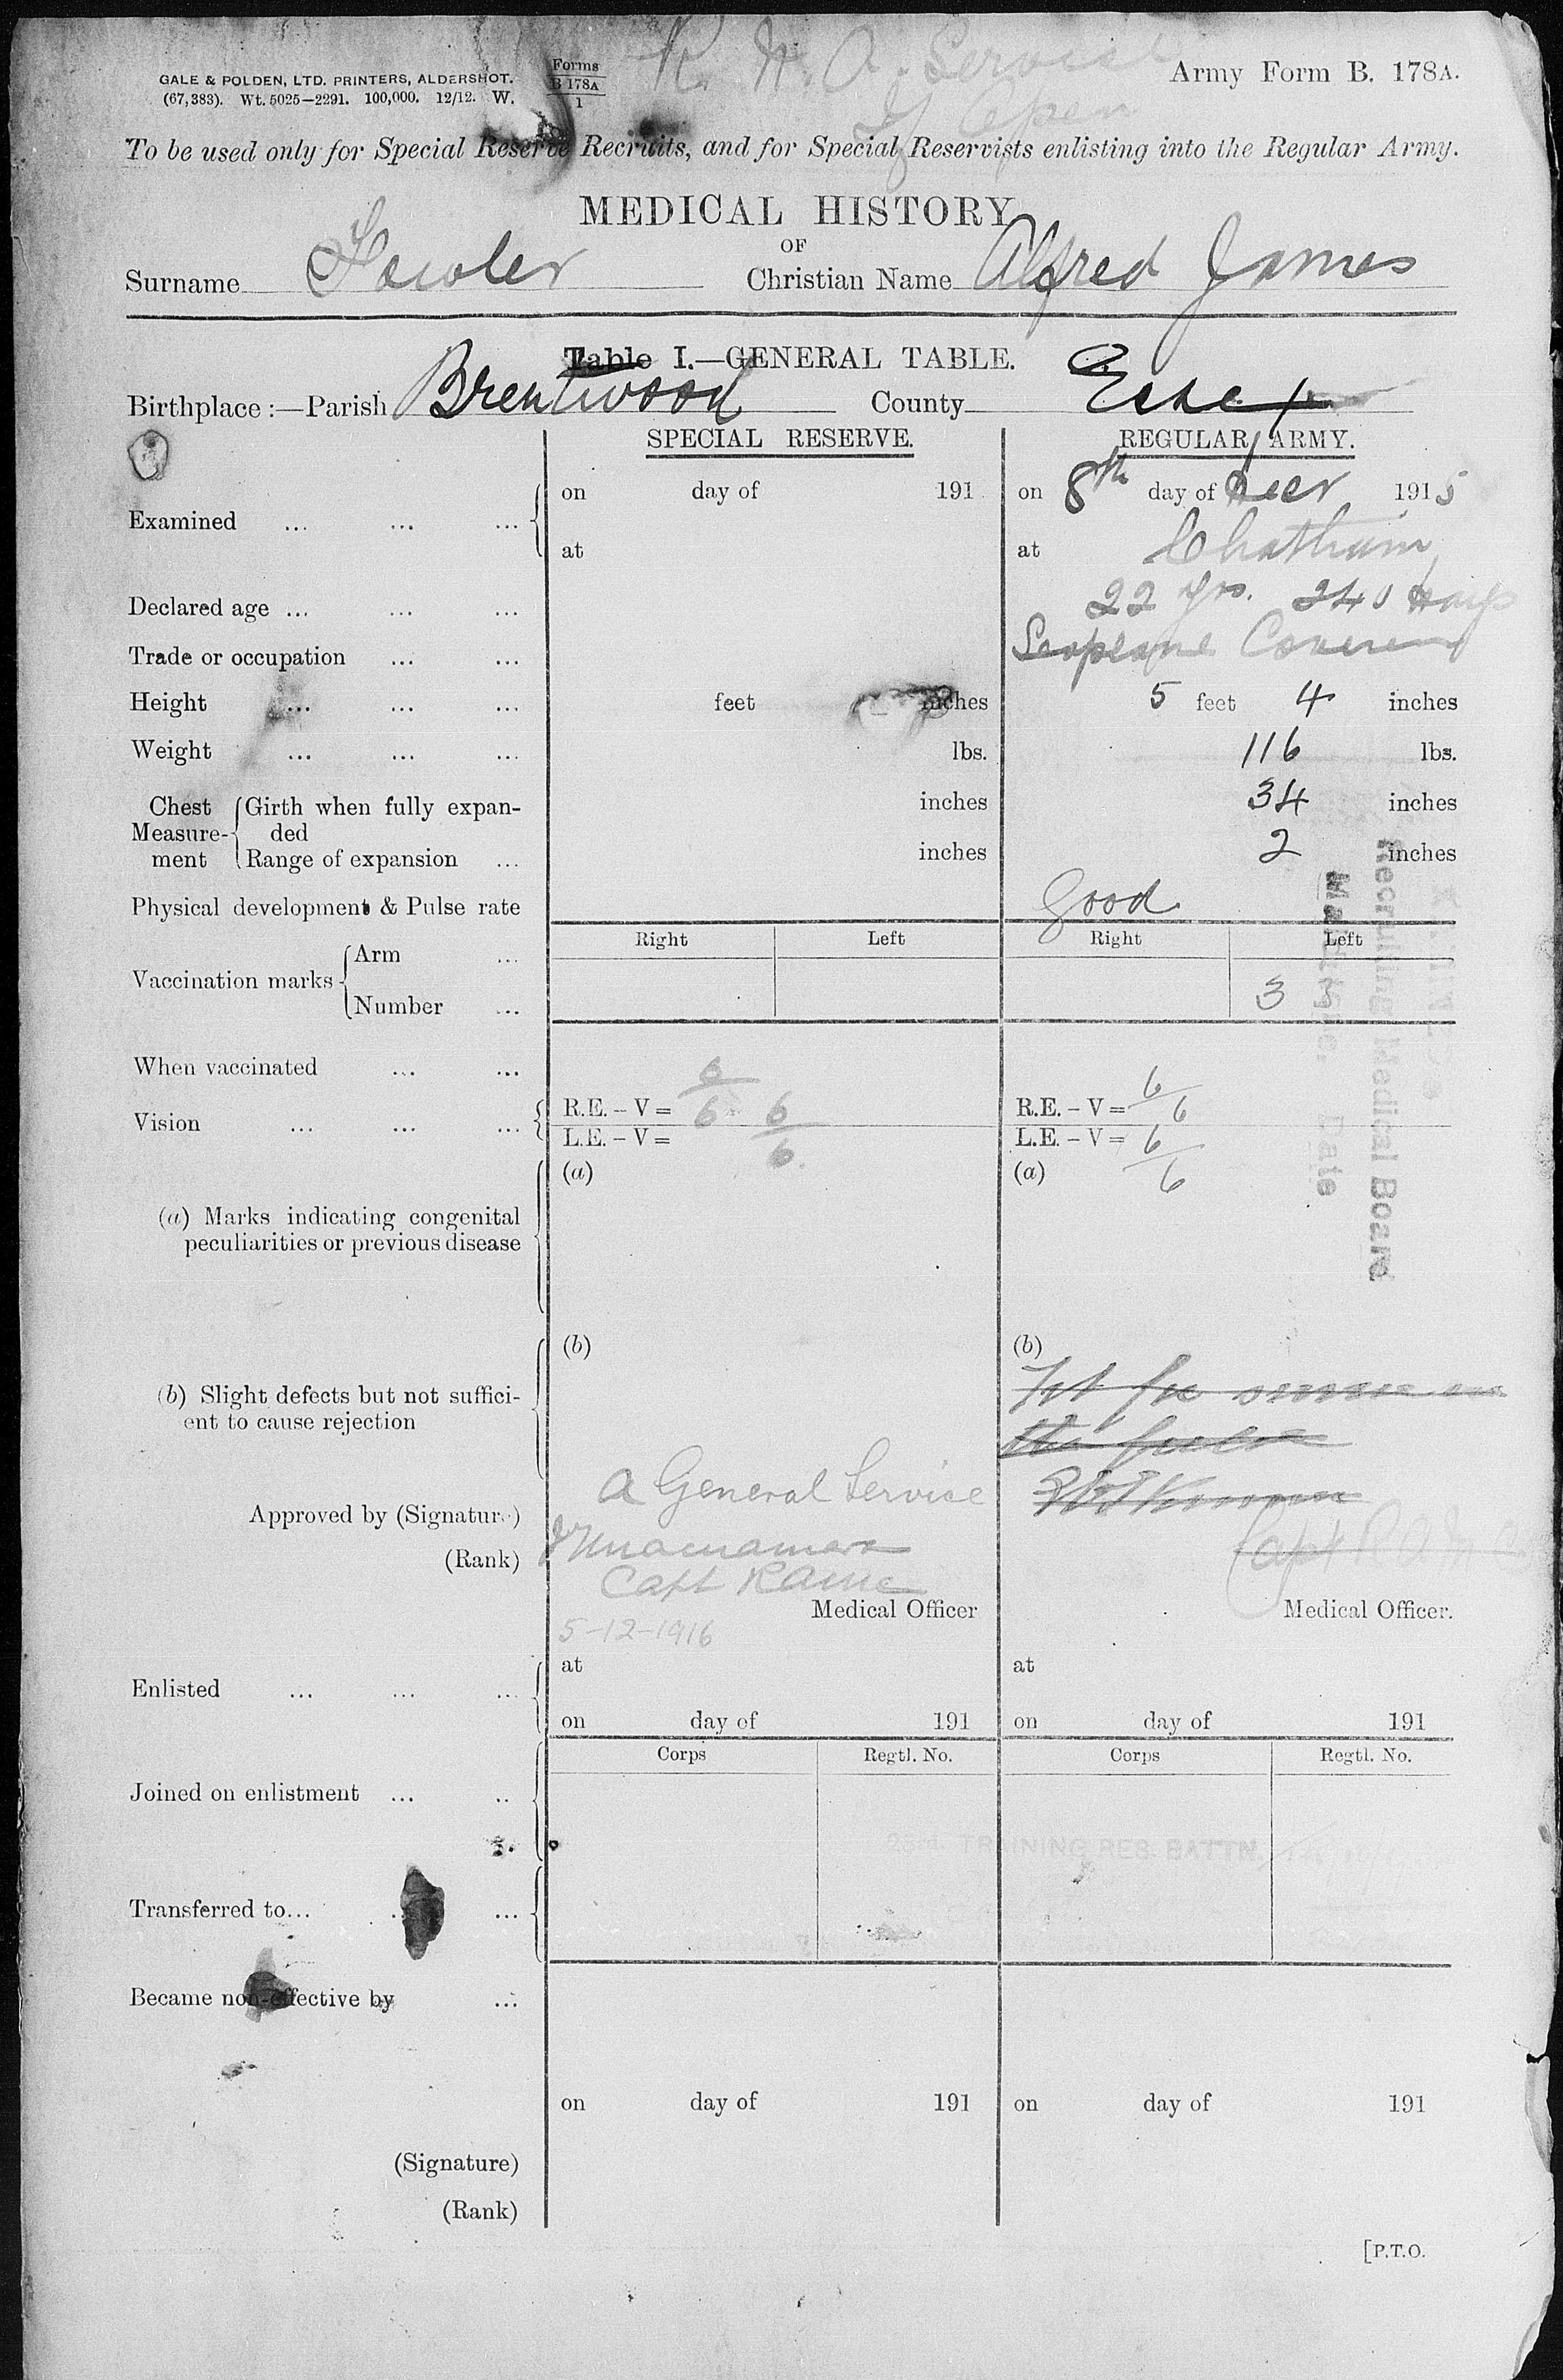 GALE & POLDEN, LTD. PRINTERS, ALDERSHOT.
(67,383). Wt. 5025—2291. 100,000. 12/12. W.
Forms
B 178A
1
Army Form B. 178A.
R. N. A. Service
if open
To be used only for Special Reserve Recruits, and for Special Reservists enlisting into the Regular Army.
MEDICAL HISTORY
OF
Surname Fowler Christian Name Alfred James
Table I.—GENERAL TABLE.
Birthplace:—Parish Brentwood County Essex
SPECIAL RESERVE. REGULAR ARMY.
Examined ... ... ...
on day of 191 on 8th day of Decr 1915
at at Chatham
Declared age ... ... ... 22 yrs. 240 days
Trade or occupation ... ... Seaplane
Height ... ... ... feet inches 5 feet 4 inches
Weight ... ... ... lbs. 116 lbs.
Chest Measurement
Girth when fully expanded inches 34 inches
Range of expansion ... inches 2 inches
Physical development & Pulse rate Good
Right Left Right Left
Vaccination marks
Arm ...
Number ... 3
When vaccinated ... ...
Vision ... ... ...
R.E. – V = 6/6 R.E. – V = 6/6
L.E. – V = 6/6 L.E. – V = 6/6
(a) Marks indicating congenital peculiarities or previous disease
(a) (a)
Recruiting Medical Board
Date
(b) Slight defects but not sufficient to cause rejection
(b) (b)
Fit for service
the field
A General Service
Approved by (Signature)
(Rank) Capt RAMC Capt R.A.M.C
Medical Officer Medical Officer.
5-12-1916
Enlisted ... ... ...
at at
on day of 191 on day of 191
Corps Regtl. No. Corps Regtl. No.
Joined on enlistment ... ..
23rd. TRAINING RES. BATTN.
Transferred to... ... ...
Became non-effective by ...
on day of 191 on day of 191
(Signature)
(Rank)
[P.T.O.